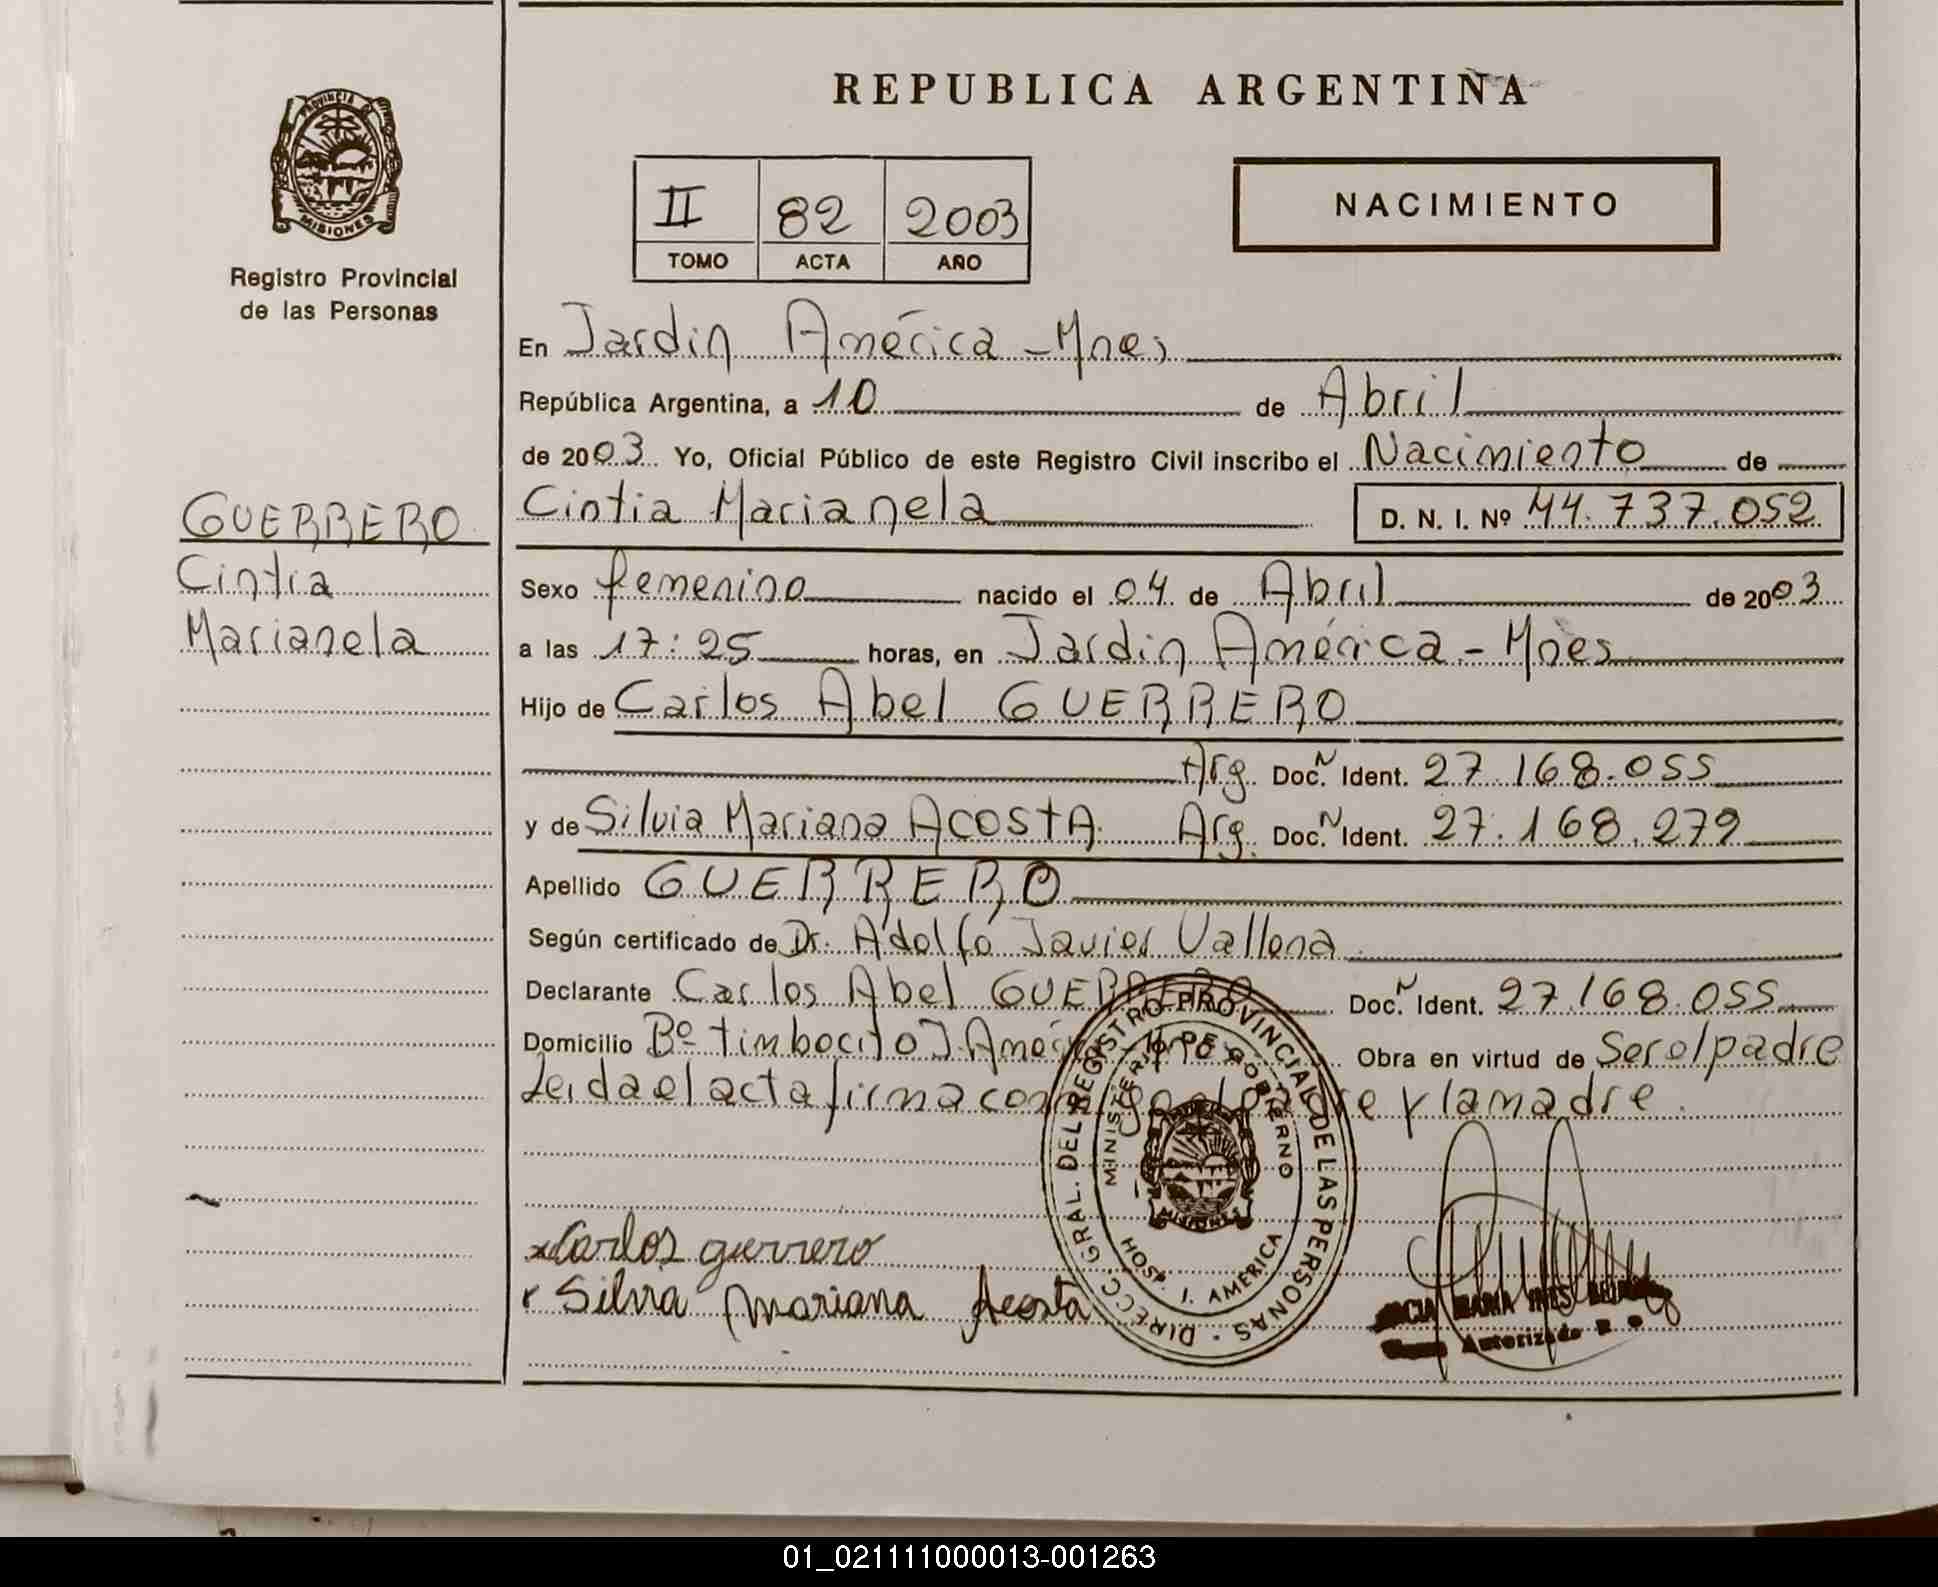 REPUBLICA ARGENTINA
PROVINCIA
MISIONES
Registro Provincial
de las Personas
II 82 2003
TOMO ACTA AÑO
NACIMIENTO
En Jardin América - Mnes
República Argentina, a 10 de Abril
de 2003 Yo, Oficial Público de este Registro Civil inscribo el Nacimiento de
Cintia Marianela D. N. I. Nº 44.737.052
GUERRERO
Cintia
Marianela
Sexo femenino nacido el 04 de Abril de 2003
a las 17:25 horas, en Jardin América - Mnes
Hijo de Carlos Abel GUERRERO
Arg. Doc. N Ident. 27.168.055
y de Silvia Mariana ACOSTA. Arg. Doc. N Ident. 27.168.279
Apellido GUERRERO
Según certificado de Dr. Adolfo Javier Vallena
Declarante Carlos Abel GUERRERO Doc. N Ident. 27.168.055
Domicilio Bº timbocito J. Amér Obra en virtud de Ser el padre
Leida el acta firma conmigo el padre y la madre.
x Carlos guerrero
x Silvia Mariana Acosta
DIRECC. GRAL. DEL REGISTRO PROVINCIAL DE LAS PERSONAS
MINISTERIO DE GOBIERNO
MISIONES
HOSP. J. AMERICA
MARIA INES
Autorizado
01_021111000013-001263